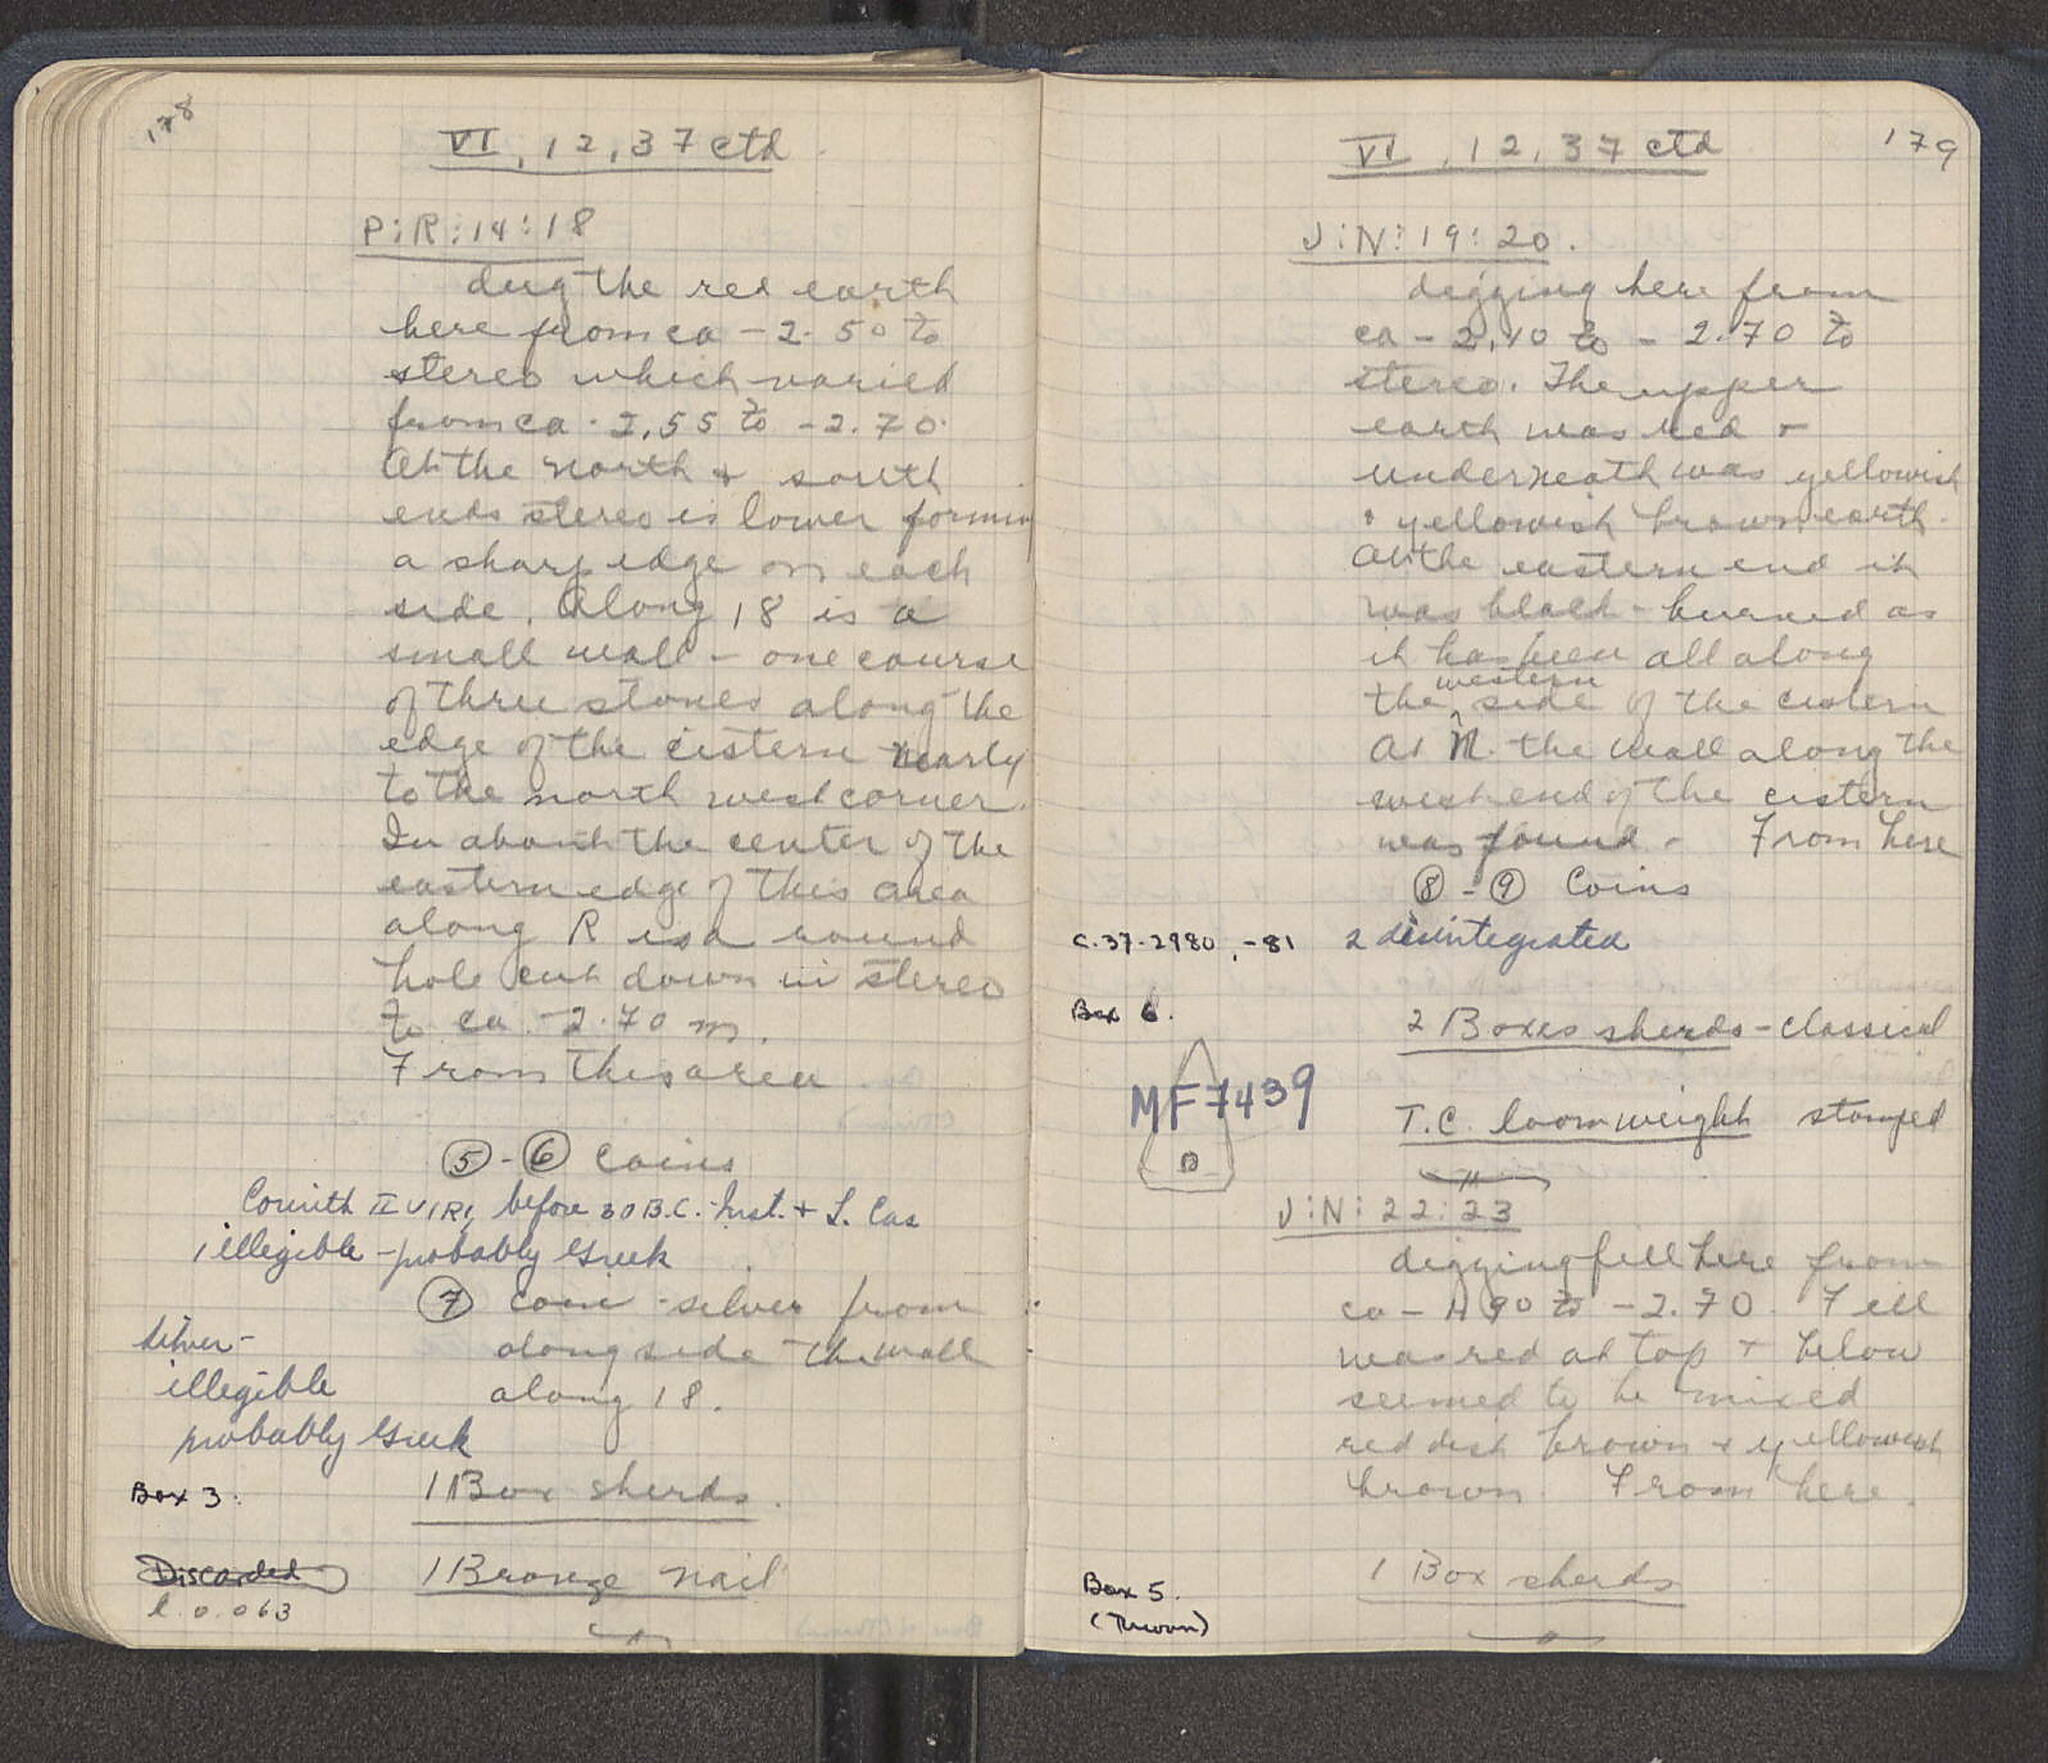 178
VI, 12, 37 ctd
P:R:14:18
dug the red earth
here from ca -2.50 to
stereo which varied
from ca -2.55 to -2.70.
At the north + south
ends stereo is lower forming
a sharp edge on each
side. Along 18 is a
small wall - one course
of three stones along the
edge of the cistern nearly
to the north west corner.
In about the center of the
eastern edge of this area
along R is a round
hole cut down in stereo
to ca. -2.70 m.
From this area
5 - 6 coins
Corinth II VIRI, before 30 B.C. - Inst. + L. Cas
illegible - probably Greek
7 coin - silver from
alongside the wall
along 18.
silver -
illegible
probably Greek
Box 3. 1 Box sherds.
Discarded 1 Bronze nail
l. 0.063
VI, 12, 37 ctd
179
J:N:19:20.
digging here from
ca - 2.40 to - 2.70 to
stereo. The upper
earth was red +
underneath was yellowish
+ yellowish brown earth.
At the eastern end it
was black - burned as
it has been all along
the western side of the cistern
At M. the wall along the
west end of the cistern
was found - From here
8 - 9 Coins
C.37-2980, -81 2 disintegrated
Box 6. 2 Boxes sherds - classical
MF 7439
T.C. loomweight stamped
J:N:22:23
digging fill here from
ca - 1.90 to - 2.70. Fill
was red at top + below
seemed to be mixed
reddish brown + yellowish
brown. From here.
Box 5. 1 Box sherds
(Thrown)